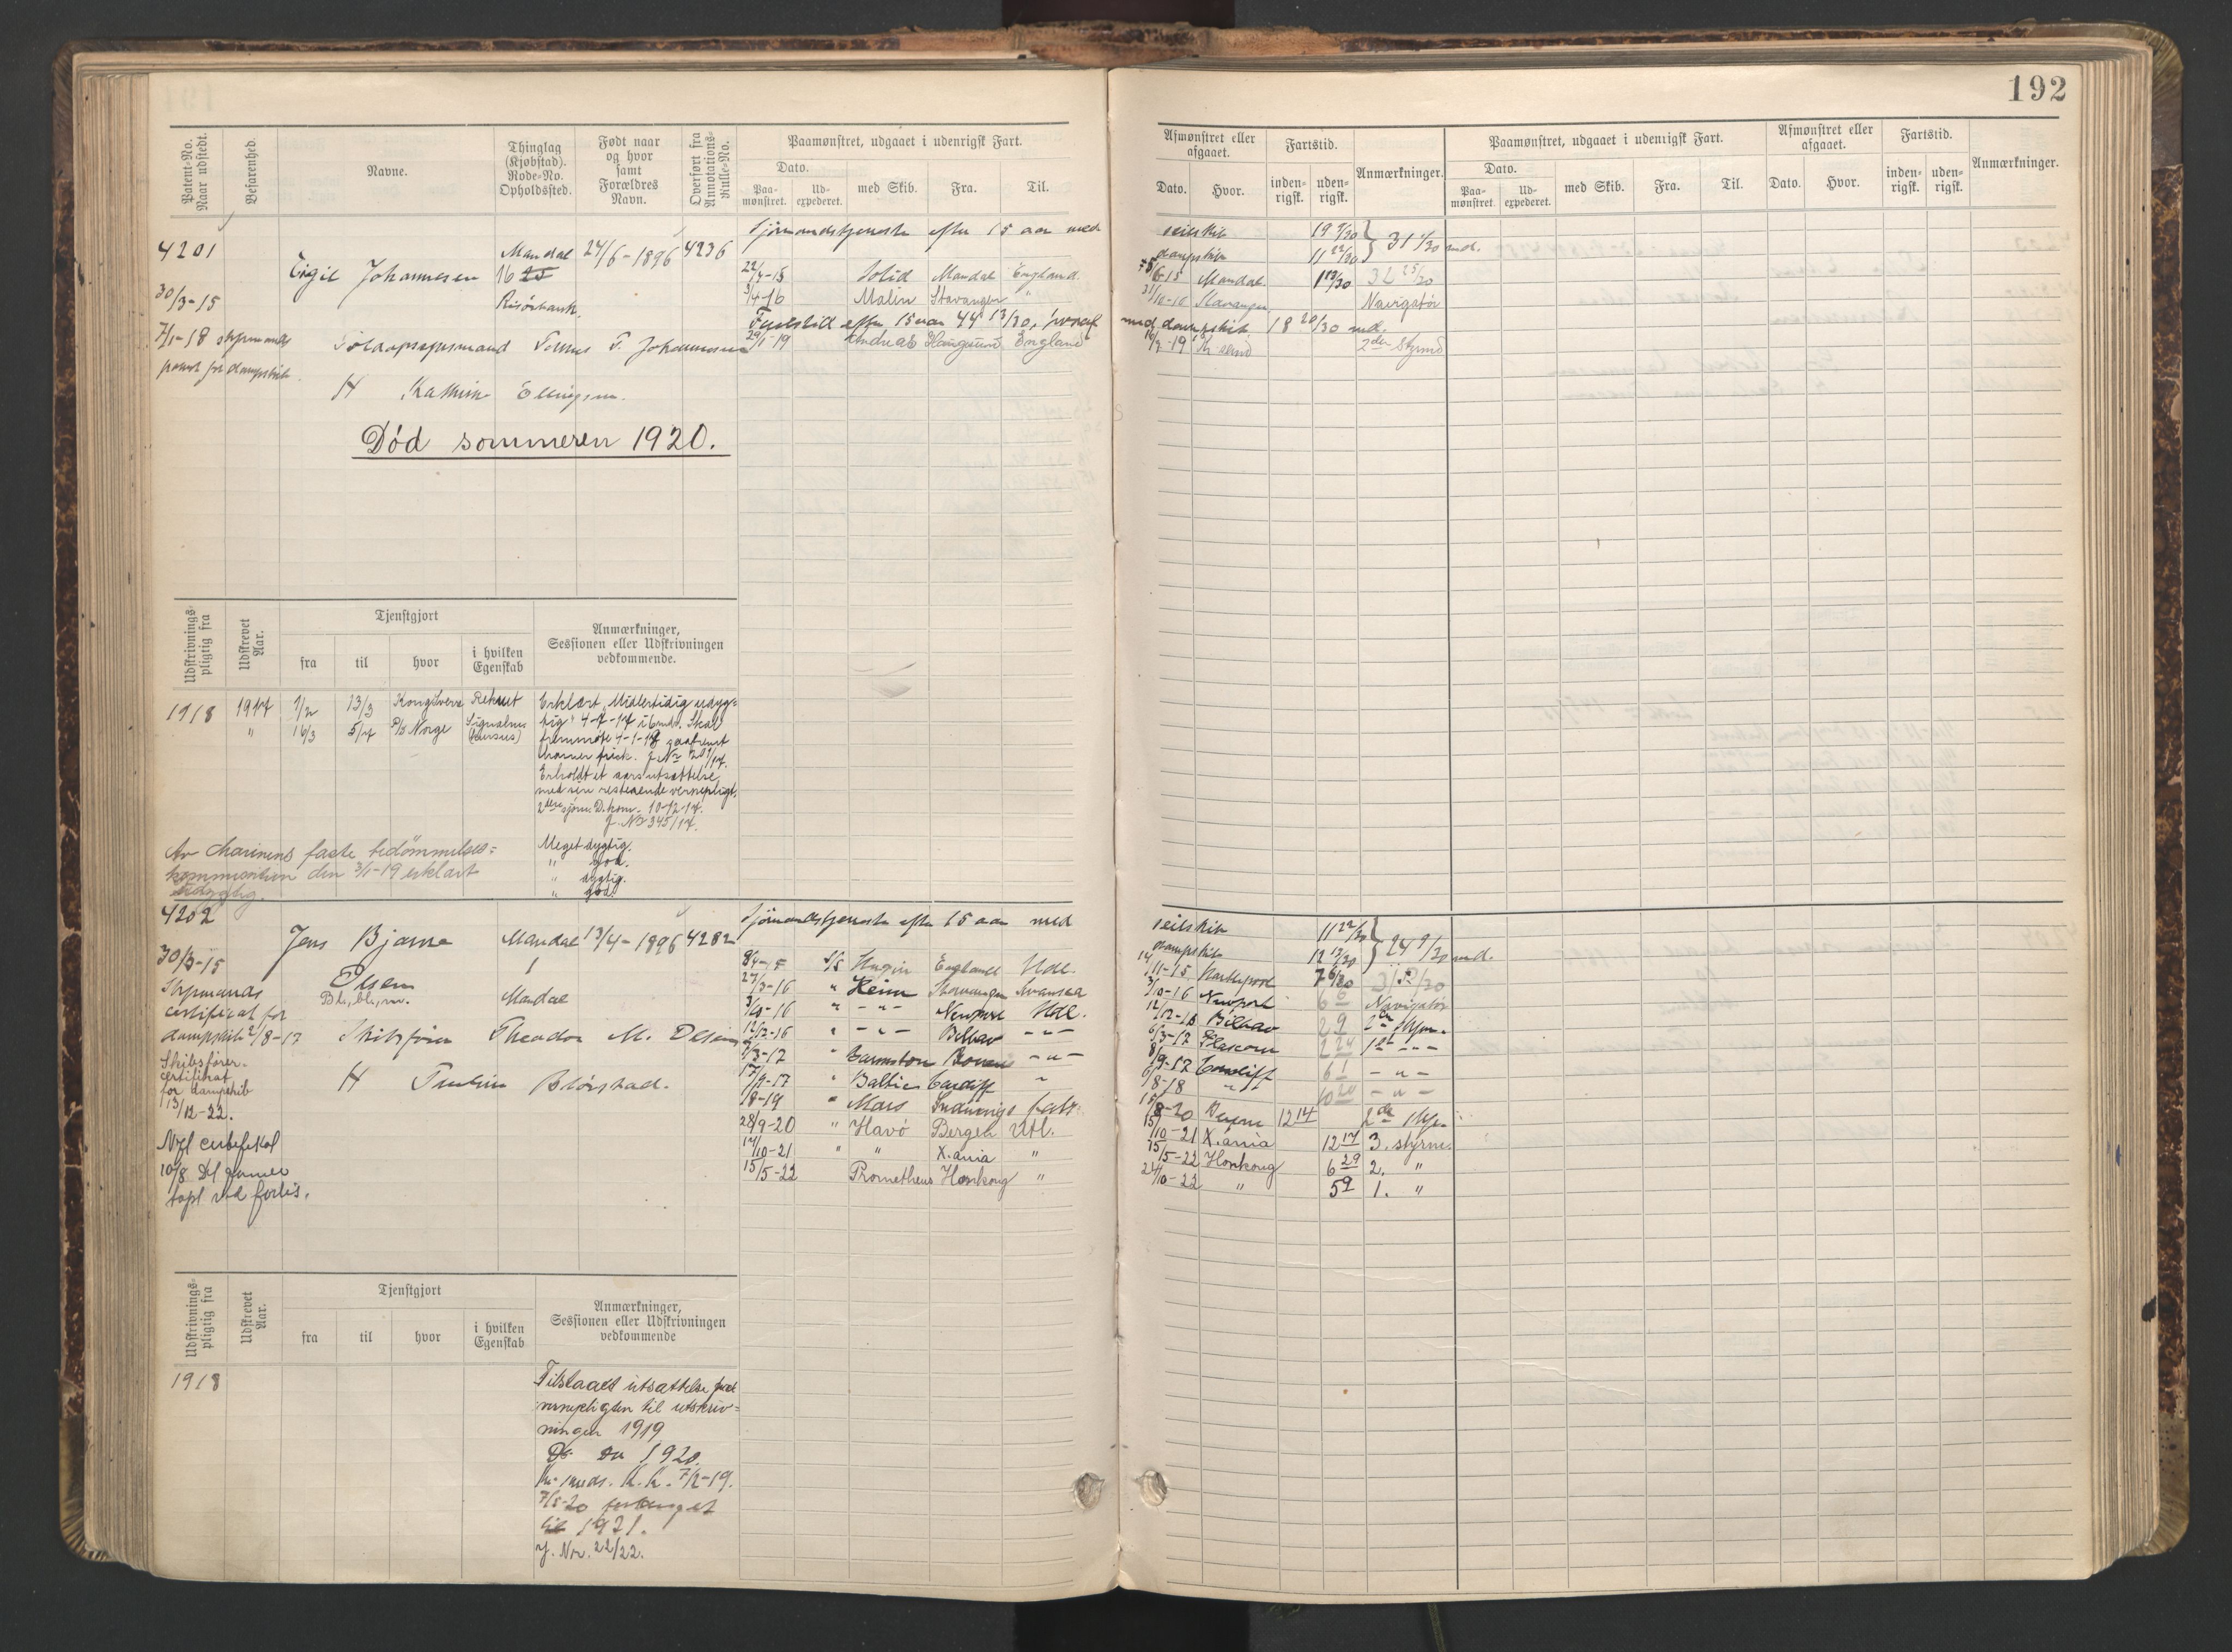 192
Patent-No. Naar udstedt.
Befarenhed.
Navne.
Thinglag (Kjøbstad). Rode-No. Opholdssted.
Født naar og hvor samt Forældres Navn.
Overført fra Annotations-Rulle-No.
Paamønstret, udgaaet i udenrigsk Fart.
Dato.
Paa-mønstret.
Ud-expederet.
med Skib.
Fra.
Til.
Afmønstret eller afgaaet.
Dato.
Hvor.
Fartstid.
inden-rigsk.
uden-rigsk.
Anmærkninger.
Paamønstret, udgaaet i udenrigsk Fart.
Dato.
Paa-mønstret.
Ud-expederet.
med Skib.
Fra.
Til.
Afmønstret eller afgaaet.
Dato.
Hvor.
Fartstid.
inden-rigsk.
uden-rigsk.
Anmærkninger.
4201
30/3-15
7/1-18 styrmands
patent for dampskib.
Eigil Johannesen
Mandal
16 25
Risöbank.
24/6-1896
4236
Sjömandstjeneste efter 15 aar med seilskib 19 9/30
dampskib 11 22/30 } 31 1/30 md.
22/4-15 Solid Mandal England. Mandal.
3/4-16 Malin Stavanger " 31/10-16 Stavanger Navigatör
Fartstid efter 15 aar 44 13/30, hvoraf med dampskib 18 20/30 md.
29/1-19 Andreas Haugesund England 2den Styrmd
Johannesen
H Kathrine Ellingsen.
Död sommeren 1920.
Udskrivnings-pligtig fra
Udskrevet Aar.
Tjenstgjort
fra
til
hvor
i hvilken Egenskab
Anmærkninger, Sessionen eller Udskrivningen vedkommende.
1918 1917 1/2 13/3 Kongsvern Rekrut
" 16/3 5/7 P/S Norge Signalmes (kursus)
Erklært "Midlertidig udyg=
tig" 4-7-17 i 6 mdr. Skal
fremmöte 4-1-18
Erholdt et aars utsættelse
med sin resterende vernepligt.
2den sjöm. D. kom. 10-12-17.
J. No 345/17.
Meget dygtig.
" god.
" dygtig.
" god.
Av Marinens faste bedömmelses=
kommission den 3/1-19 erklært
udygtig.
4202
30/3-15
Styrmands
certifikat for
dampskib 2/8-17
Skibsförer-
certifikat
for dampskib
13/12-22.
Nyt certifikat
10/8 Det gamle
tapt ved forlis.
Jens Bjarne
Olsen
Bl., bl., m.
Mandal
1
Mandal
13/4-1896
4282
Skibsförer Theodor M. Olsen
H
Sjömandstjeneste efter 15 aar med seilskib 11 22/30
dampskib 12 17/30 } 24 9/30 md.
S/S Hugin England Udl. 14/11-15 Hartlepool 7 6/30
27/3-16 " Heim Stavanger Swansea 3/10-16 Newport 6 6 Navigatör
3/10-16 " -"- Newport Udl. 12/12-16 Bilbao 2 9 2den Styrm.
12/12-16 " -"- Bilbao -"- 6/3-17 2 24 1ste -"-
/3-17 " -"- 8/9-17 Cardiff 6 1 -"-
17/9-17 " Baltic Cardiff " /8-18 " 10 20 -"-
/8-19 " Mars 15/8-20 12 14 2de Styr.
28/9-20 " Havö Bergen Utl. 15/10-21 X.ania 12 17 3. styrm.
17/10-21 " " X.ania " 15/5-22 Honkong 6 29 2. "
15/5-22 Prometheus Honkong " 24/10-22 " 5 9 1. "
Udskrivnings-pligtig fra
Udskrevet Aar.
Tjenstgjort
fra
til
hvor
i hvilken Egenskab
Anmærkninger, Sessionen eller Udskrivningen vedkommende
1918
Tilstaaet utsættelse med
vernepligten til utskriv=
ningen 1919
Do Do 1920.
K.K. 7/2-19.
7/5-20 forlænget
til 1921.
J. Nr. 22/22.